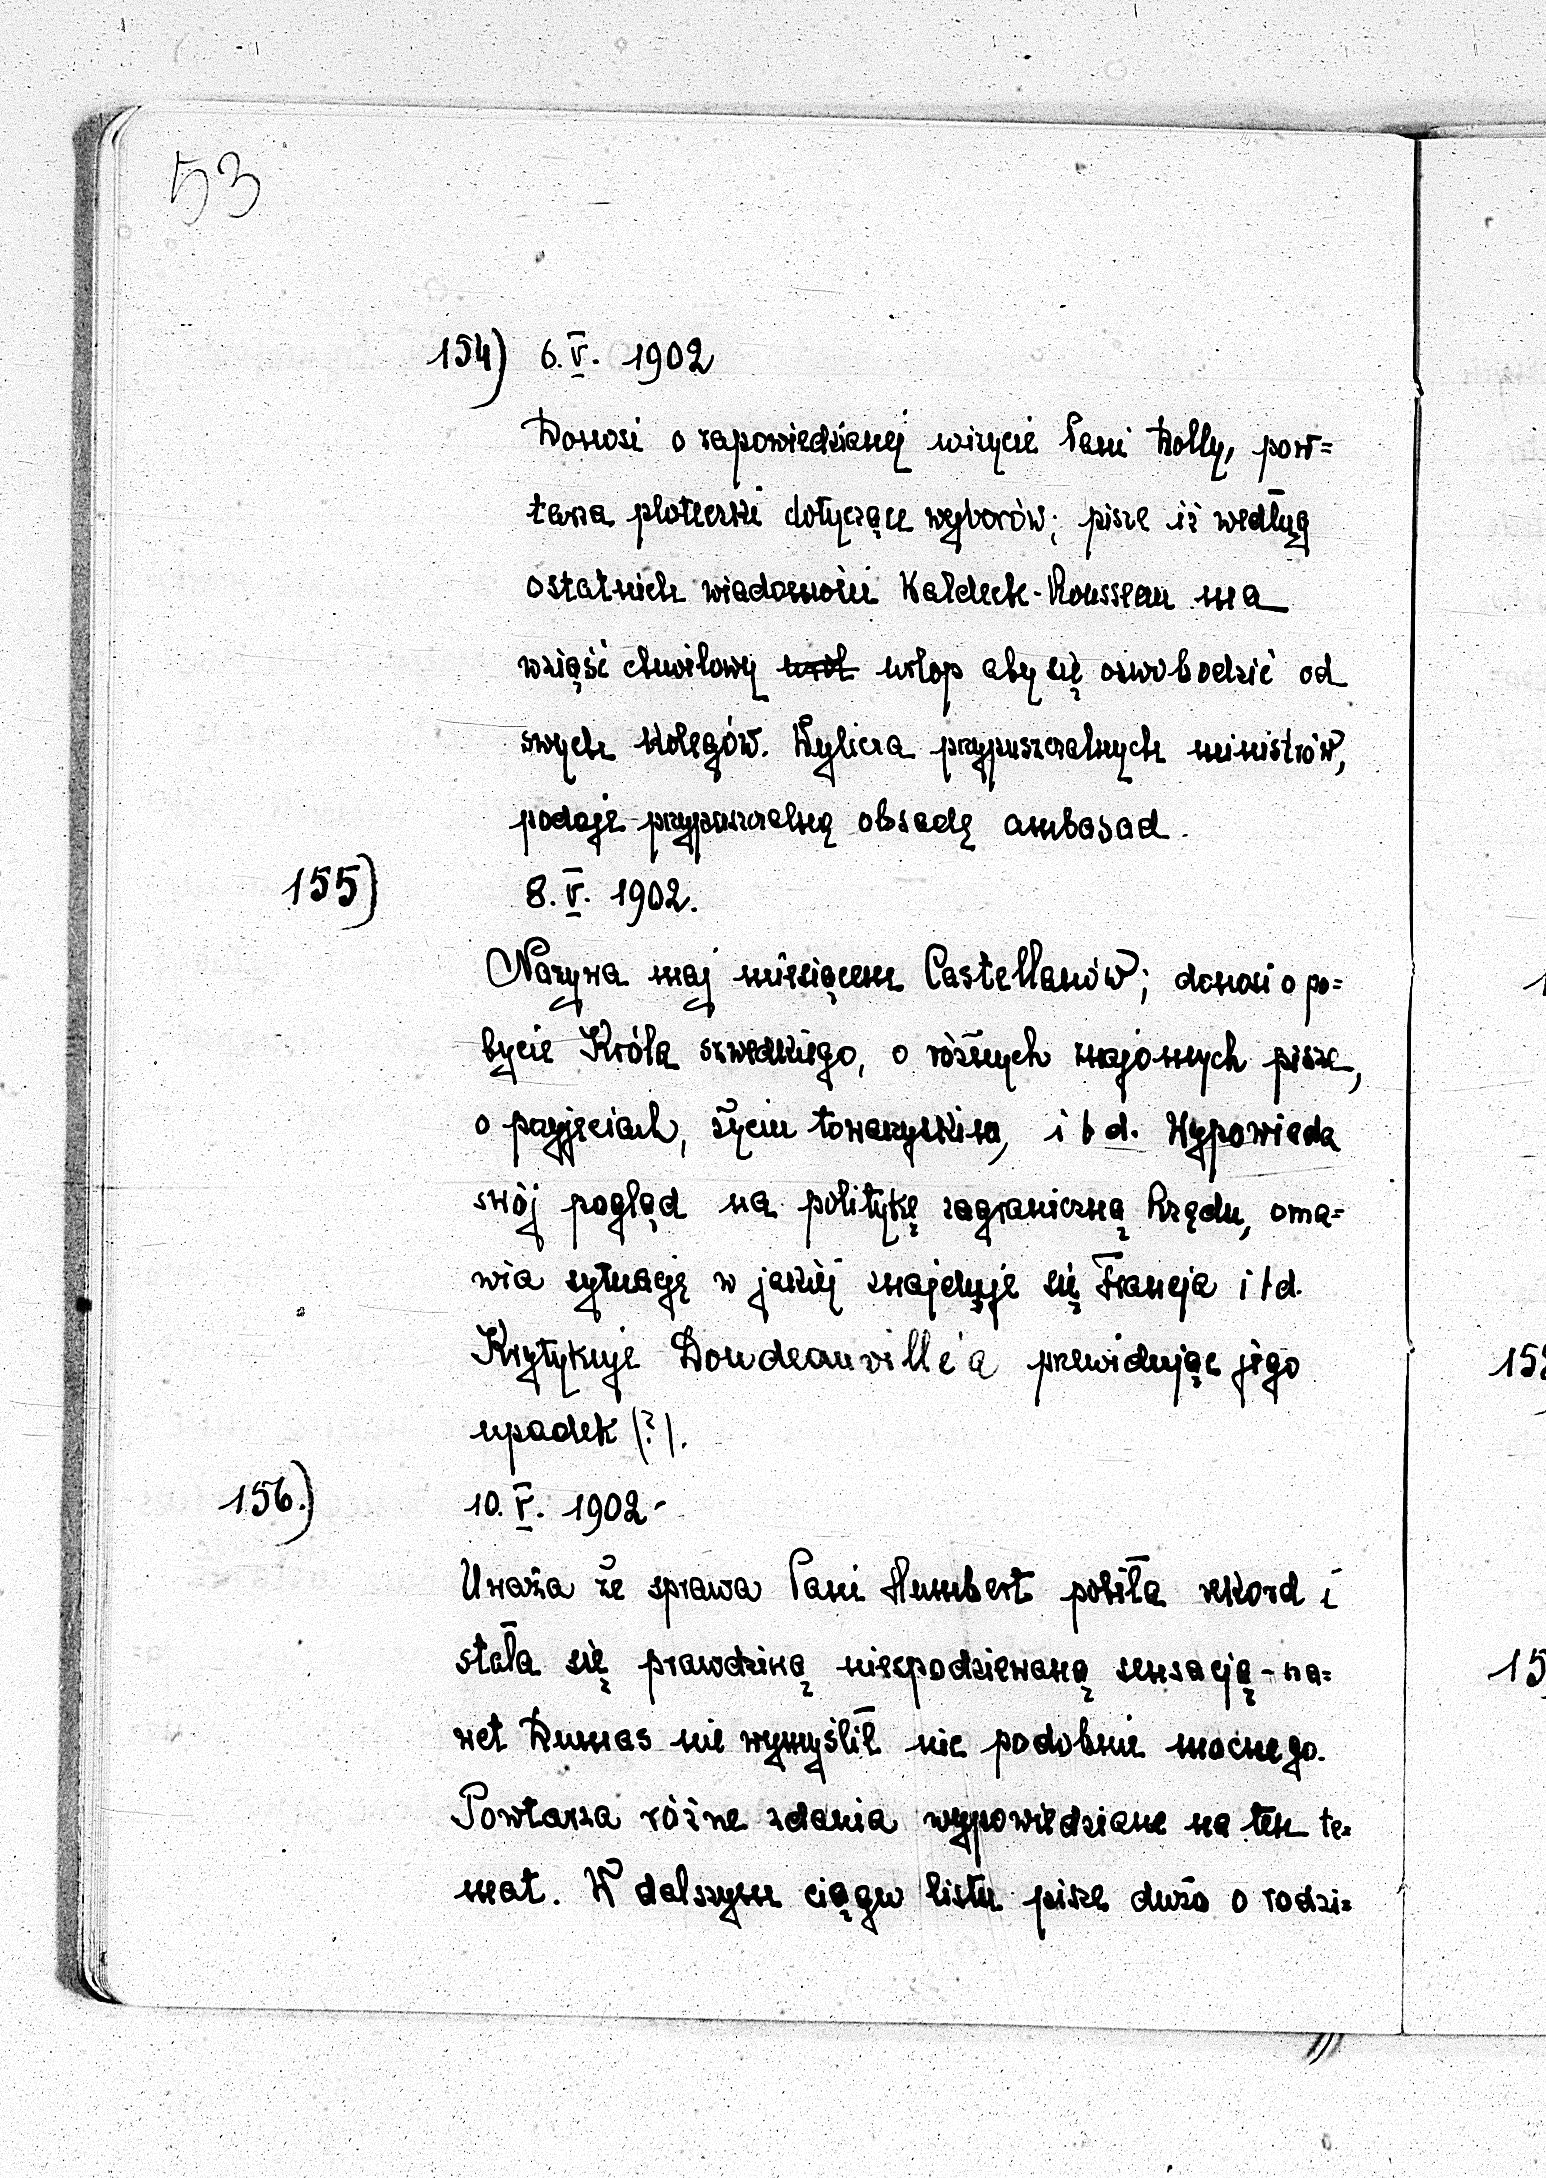 53
154) 6.V. 1902
Donosi o zapowiedzianej wizycie Pani Dolly, pow=
tarza ploteczki dotyczące wyborów; pisze iż według
ostatnich wiadomości Waldeck-Rousseau ma
wziąść chwilowy urlop aby się oswobodzić od
swych kolegów. Wylicza przypuszczalnych ministrów,
podaje przypuszczalną obsadę ambasad.
155) 8.V. 1902.
Nazywa maj miesiącem Castellanów; donosi o po=
bycie Króla szwedkiego, o różnych znajomych pisze,
o przyjęciach, życiu towarzyskim, i t d. Wypowiada
swój pogląd na politykę zagraniczną Rządu, oma=
wia sytuację w jakiej znajduje się Francja i t d.
Krytykuje Doudeauville'a przewidując jego
upadek (?).
156.) 10.V. 1902-
Uważa że sprawa Pani Humbert pobiła rekord i
stała się prawdziwą niespodziewaną sensacją - na=
wet Dumas nie wymyślił nic podobnie mocnego.
Powtarza różne zdania wypowiedziane na ten te=
mat. W dalszym ciągu listu pisze dużo o rodzi=
15